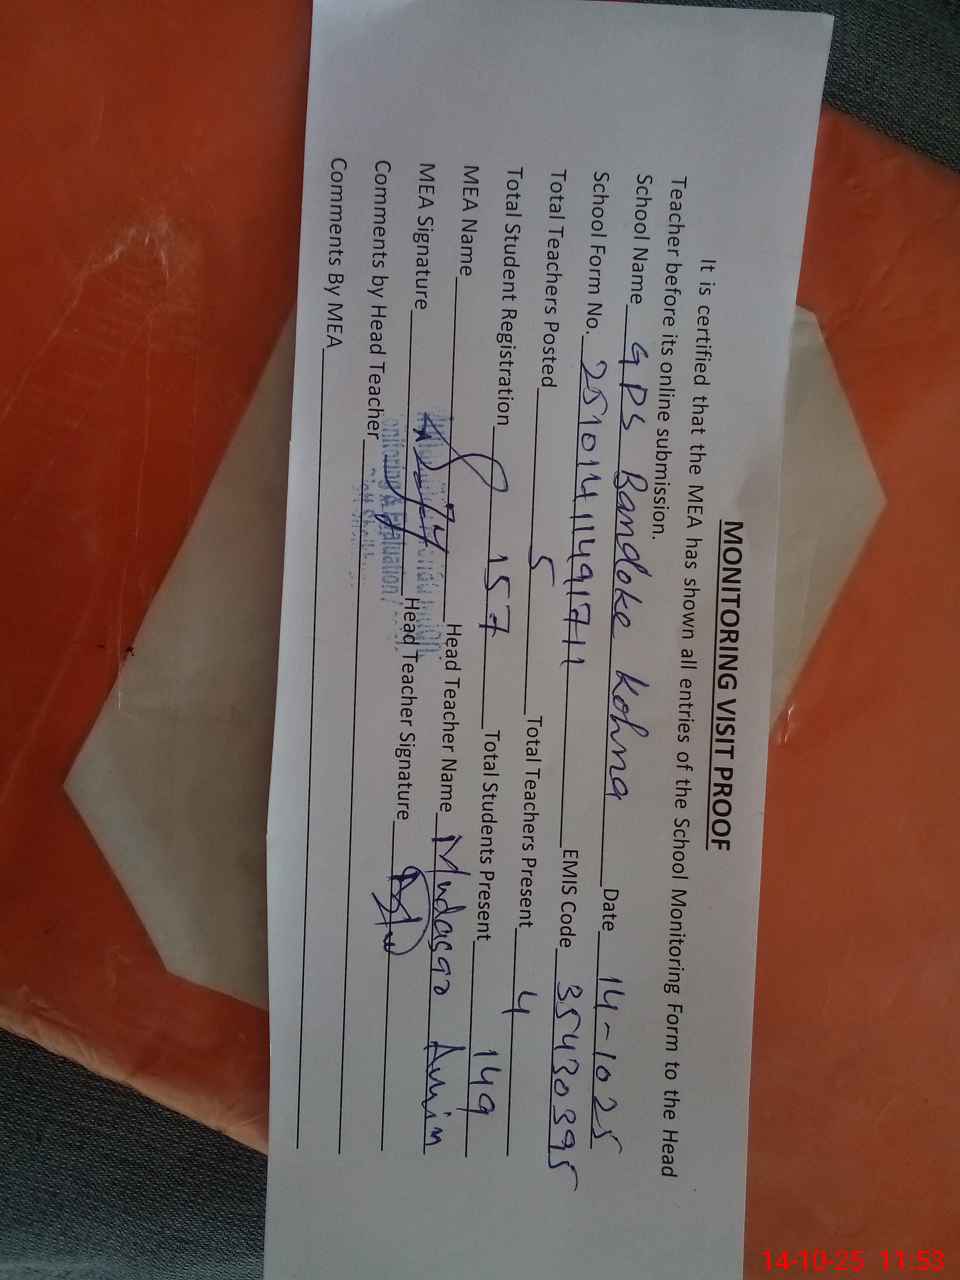 MONITORING VISIT PROOF
It is certified that the MEA has shown all entries of the School Monitoring Form to the Head
Teacher before its online submission.
School Name GPS Bandoke Kohna Date 14-10 25
School Form No. EMIS Code 35430395
Total Teachers Posted 5 Total Teachers Present 4
Total Student Registration 157 Total Students Present 149
MEA Name Head Teacher Name Mudassar Amin
MEA Signature Head Teacher Signature
Comments by Head Teacher
Comments By MEA
14-10-25 11:53